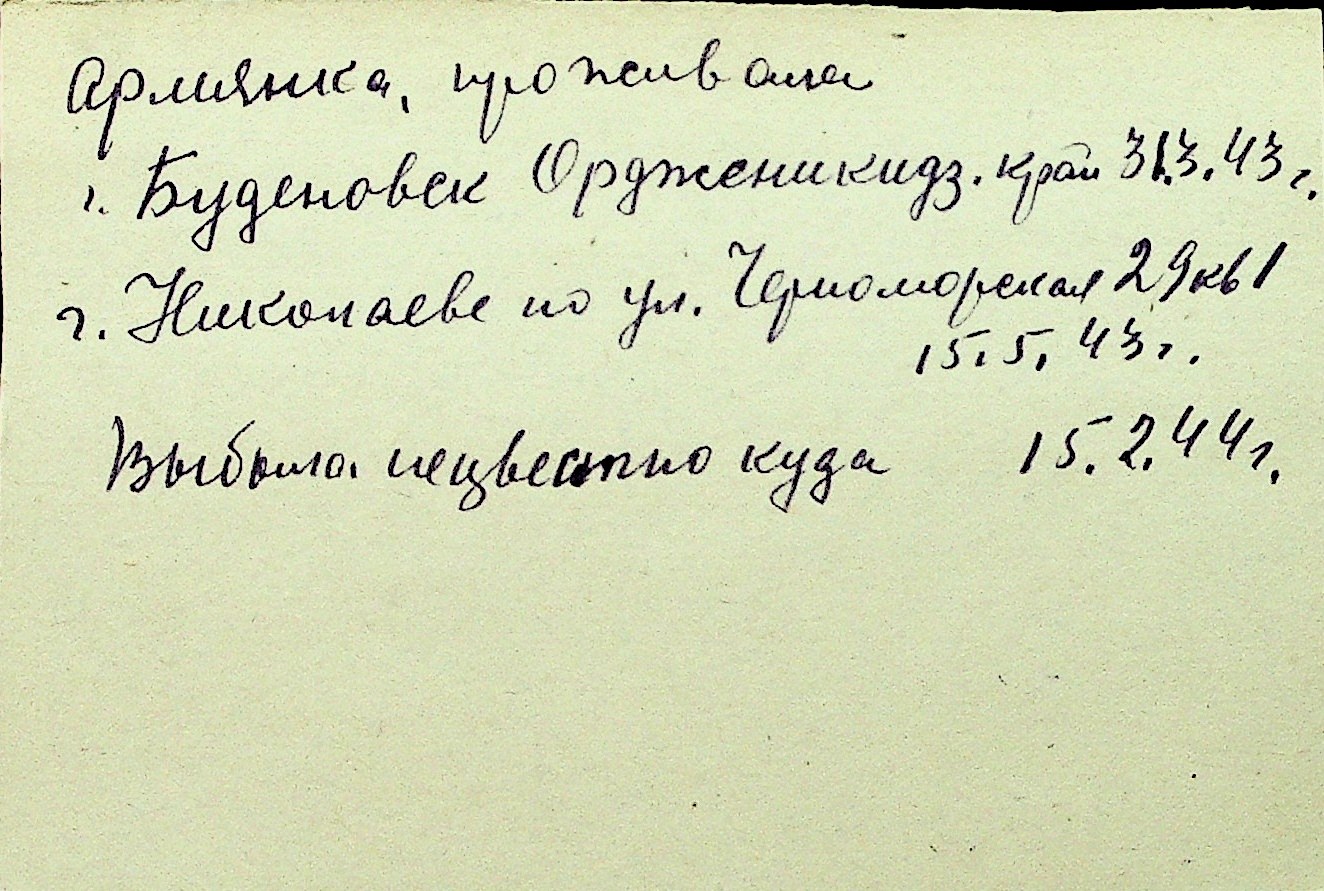 Армянка, проживала
г. Буденовск Орджсникидз. край 31.3.43 г.
г. Николаеве по ул. Черноморская 29 кв 1
15.5.43 г.
Выбыла неизвестно куда 15.2.44 г.